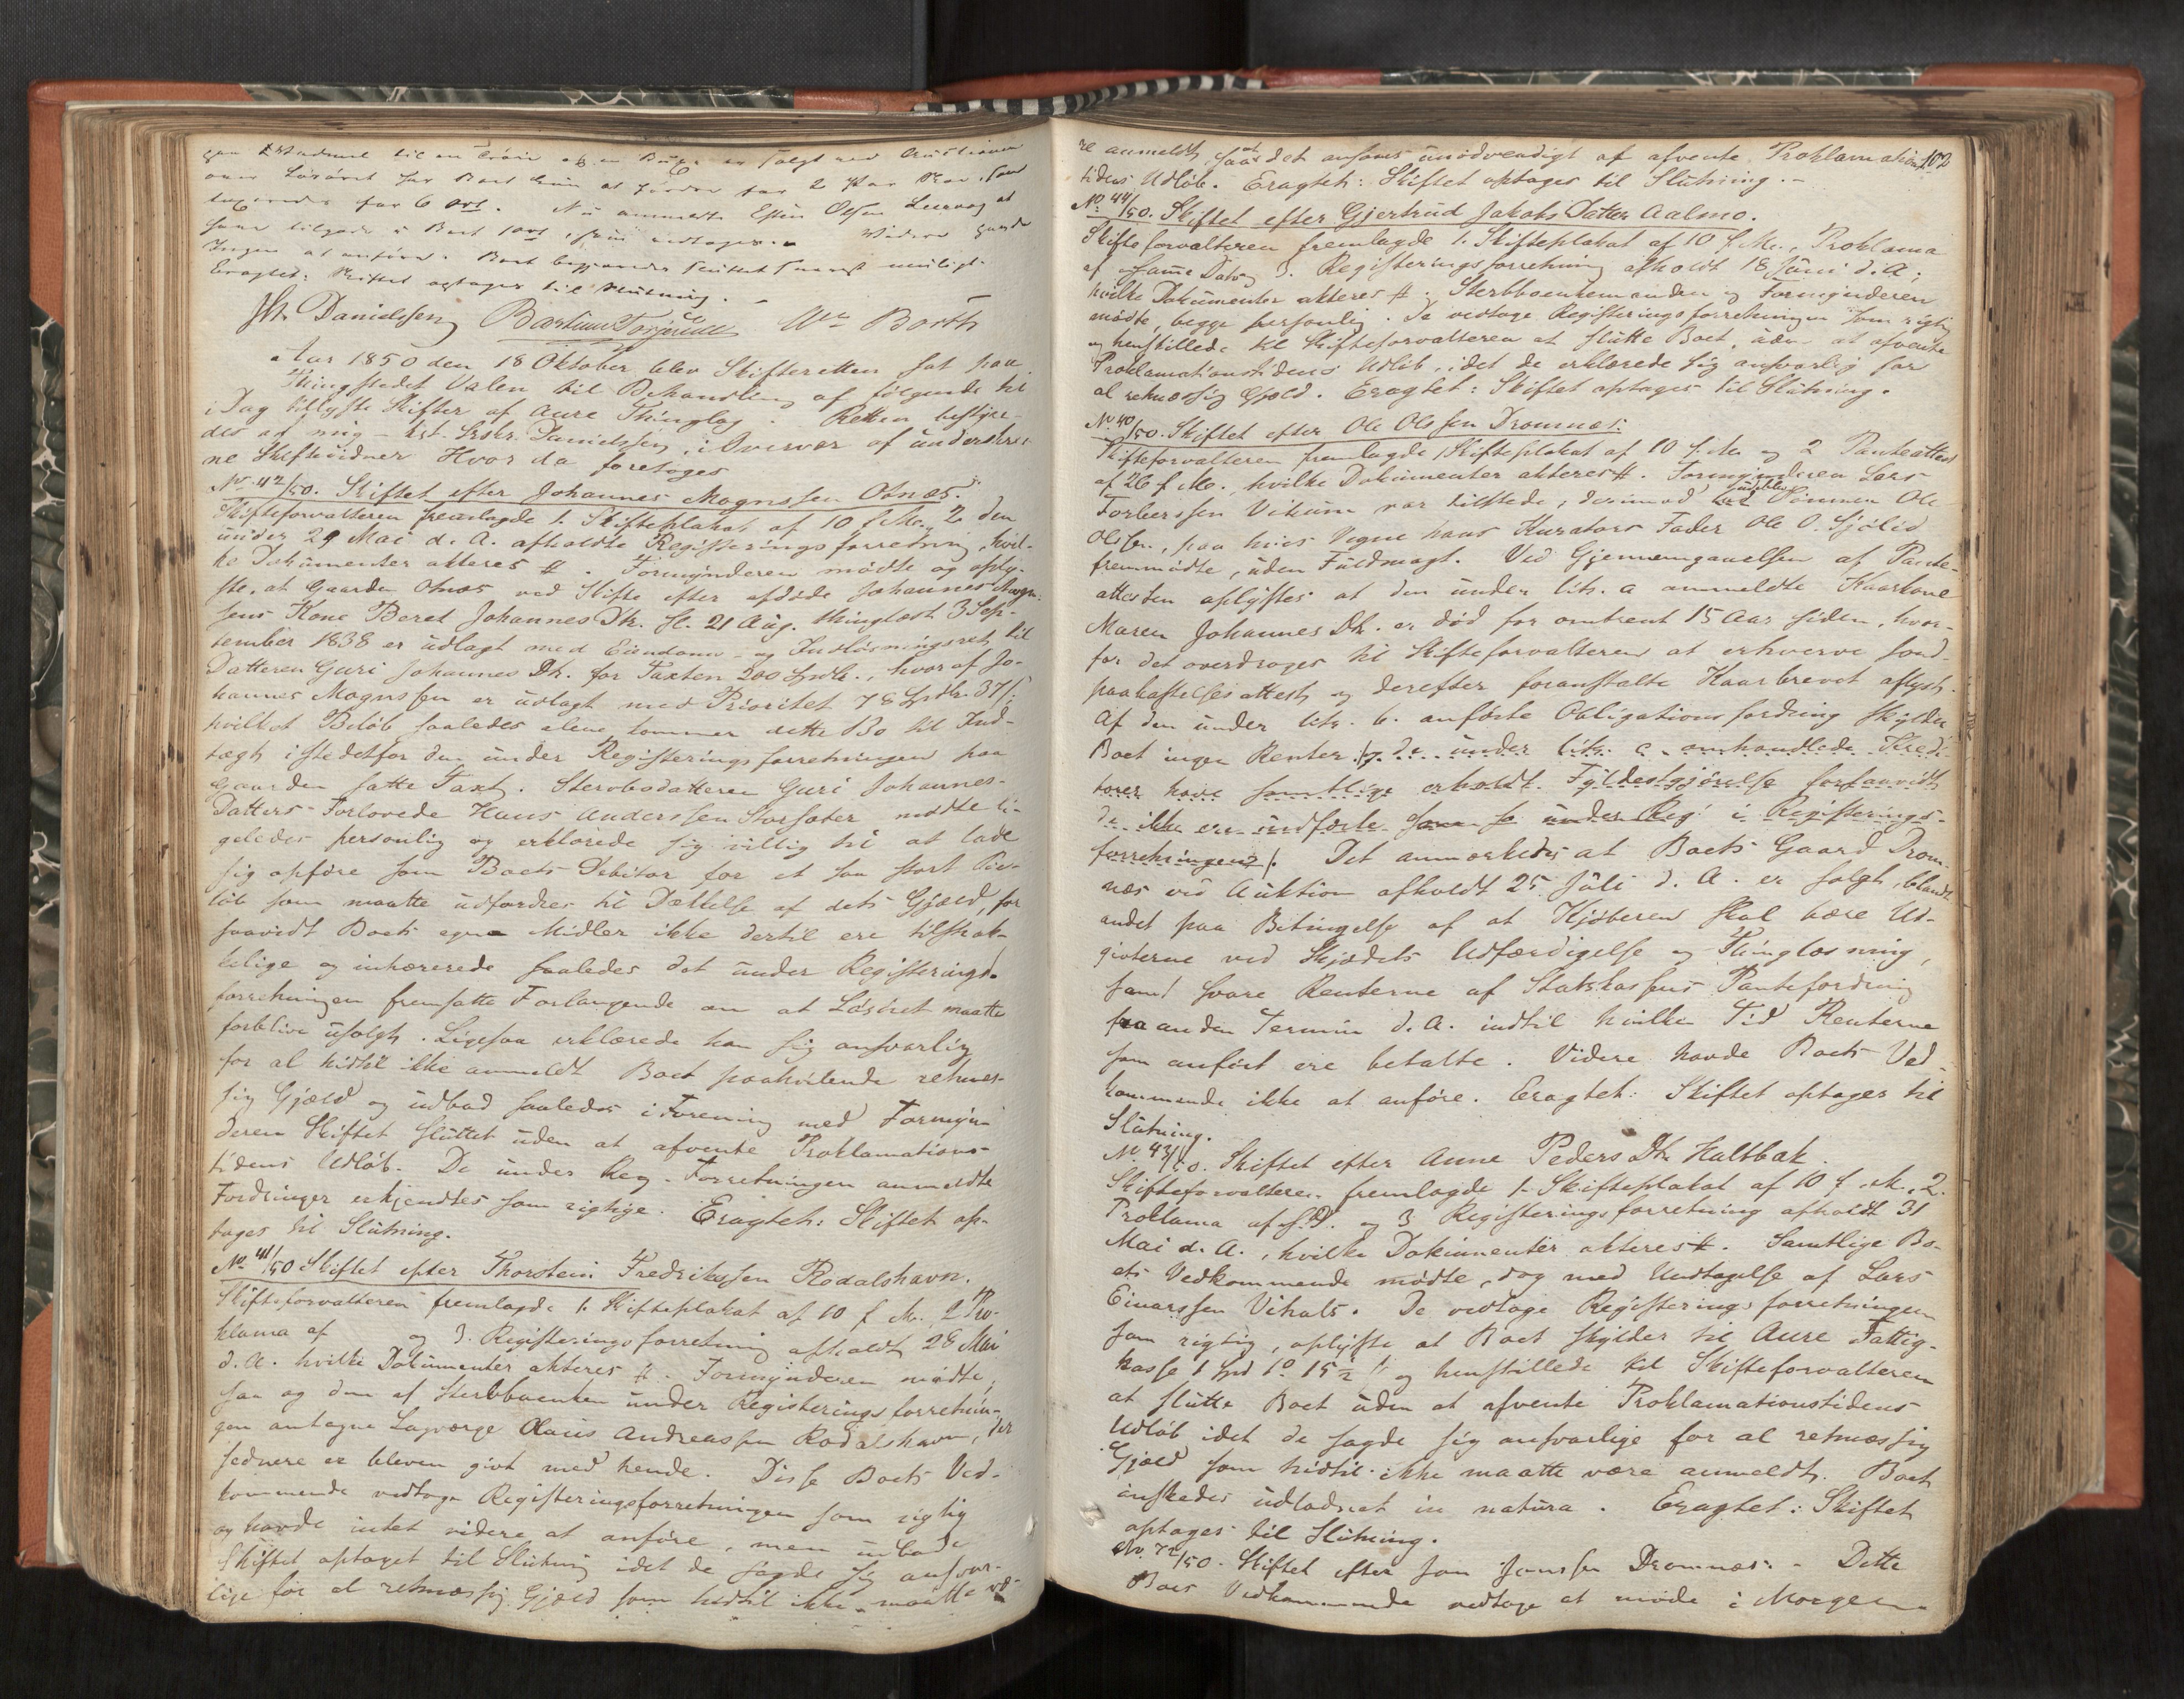 til en Trøie og en Buxe er solgt ved Auktionen
over Løsøret har Boet at fordre for 2 Par som
taxeredes for 6 ort. Nu anmeldte Olsen Leervaag at
have tilgode i Boet 1 ort, som vedtages. Videre havde
Ingen at anføre. Boet begjæredes sluttet snarest muligt.
Eragtet: Skiftet optages til Slutning. -
Danielssen Bastian W. Barth
Aar 1850 den 18 Oktober blev Skifteretten sat paa
Thingstedet Valen til Behandling af følgende til
i Dag tillyste Skifter af Aure Thinglag. Retten bestyre-
des af mig - kst. Sorskr. Danielssen, i Overvær af underskrev-
ne Skiftevidner Hvor da foretoges
No 42/50. Skiftet efter Johannes Magnssen Otnæs.
Skifteforvalteren fremlagde 1. Skifteplakat af 10 f. M., 2 den
under 29 Mai d. A. afholdte Registeringsforretning, hvil-
ke Dokumenter akteres #. Formynderen mødte og oply-
ste, at Gaarden Otnæs ved Skifte efter afdøde Johannes Magn-
sens Kone Beret Johannes Dtr. sl. 21 Aug. thinglæst 3 Sep-
tember 1838 er udlagt med Eiendoms- og Indløsningsret til
Datteren Guri Johannes Dtr. for Taxten 200 Spdlr., hvoraf Jo-
hannes Magnssen er udlagt med Prioritet 78 Spdlr. 37 s.,
hvilket Beløb saaledes alene kommer dette Bo til Ind-
tægt istedetfor den under Registeringsforretningen paa
Gaarden satte Taxt. Sterbodatteren Guri Johannes-
Datters Forlovede Hans Anderssen Storsæter mødte li-
geledes personlig og erklærede sig villig til at lade
sig opføre som Boets Debitor for et saa stort Be-
løb som maatte udfordres til Dækkelse af dets Gjæld, for
saavidt Boets egne Midler ikke dertil ere tilstræk-
kelige og inhærerede saaledes det under Registerings-
forretningen fremsatte Forlangende om at Løsøret maatte
forblive usolgt. Ligesaa erklærede han sig ansvarlig
for al hidtil ikke anmeldt Boet paahvilende retmæs-
sig Gjæld og udbad saaledes i Forening med Formyn-
deren Skiftet sluttet uden at afvente Proklamations-
tidens Udløb. De under Reg. Forretningen anmeldte
Fordringer erkjendtes som rigtige. Eragtet: Skiftet op-
tages til Slutning.
No 41/50 Skiftet efter Thorstein Fredrikssen Rodalshavn.
Skifteforvalteren fremlagde 1. Skifteplakat af 10 f. M., 2 Pro-
klama af og 3. Registeringsforretning afholdt 28 Mai
d. A. hvilke Dokumenter akteres #. Formynderen mødte,
saa og den af Sterbboenken under Registeringsforretnin-
gen antagne Laugværge Claus Andreassen Rodalshavn, der
sednere er bleven givt med hende. Disse Boets Ved-
kommende vedtoge Registeringsforretningen som rigtig
og havde intet videre at anføre, men udbade
Skiftet optaget til Slutning idet de sagde sig ansvar-
lige for al retmæssig Gjæld som hidtil ikke maatte væ-
re anmeldt, saa at det ansaaes unødvendigt at afvente Proklamations- 102
tidens Udløb. Eragtet: Skiftet optages til Slutning. -
No 44/50. Skiftet efter Gjertrud Jakobs Datter Aalmo.
Skifteforvalteren fremlagde 1. Skifteplakat af 10 f. M., Proklama
af samme Dato, 3. Registeringsforretning afholdt 18 Juni d. A.,
hvilke Dokumenter akteres #. Sterbboenkemanden og Formynderen
mødte, begge personlig. De vedtoge Registeringsforretningen som rigtig
og henstillede til Skifteforvalteren at slutte Boet, uden at afvente
Proklamationstidens Udløb, idet de erklærede sig ansvarlig for
al retmæssig Gjæld. Eragtet: Skiftet optages til Slutning.
No 40/50. Skiftet efter Ole Olssen Dromnæs:
Skifteforvalteren fremlagde 1 Skifteplakat af 10 f. M. og 2 Panteattest
af 26 f. M., hvilke Dokumenter akteres #. Formynderen Lars
Torberssen Vikum var tilstede, derimod udeblev Sønnen Ole
Olssen, paa hvis Vegne hans Kurators Fader Ole O. Sjølid
fremmødte, uden Fuldmagt. Ved Gjennemgaaelsen af Pante-
attesten oplystes at den under litr. a anmeldte Kaarkone
Maren Johannes Dtr. er død for omtrent 15 Aar siden, hvor-
for det overdroges til Skifteforvalteren at erhverve sand-
paahæftelsesattest og derefter foranstalte Kaarbrevet aflyst.
Af den under litr. b. anførte Obligationsfordring skylder
Boet ingen Renter. /: og de under litr. c omhandlede Kredi-
torer have samtlige erholdt Fyldestgjørelse forsaavidt
de ikke ere indførte under Reg i Registerings-
forretningen :/. Det anmærkedes at Boets Gaard Drom-
næs ved Auktion afholdt 25 Juli d. A. er solgt, blandt
andet paa Betingelse af at Kjøberen skal bære Ud-
givterne ved Skjødets Udfærdigelse og Thinglæsning,
samt svare Renterne af Statskassens Pantefordring
fra anden Termin d. A. indtil hvilken Tid Renterne
som anført ere betalte. Videre havde Boets Ved-
kommende ikke at anføre. Eragtet: Skiftet optages til
Slutning.
No 43/50. Skiftet efter Anne Peders Dtr. Haltbak.
Skifteforvalteren fremlagde 1. Skifteplakat af 10 f. M., 2.
Proklama af s. D. og 3 Registeringsforretning afholdt 31
Mai d. A., hvilke Dokumenter akteres #. Samtlige Bo-
ets Vedkommende mødte, dog med Undtagelse af Lars
Einarssen Vihals. De vedtoge Registeringsforretningen
som rigtig, oplyste at Boet skylder til Aure Fattig-
kasse 1 Spd 1 o 15 ½ s og henstillede til Skifteforvalteren
at slutte Boet uden at afvente Proklamationstidens
Udløb idet de sagde sig ansvarlige for al retmæssig
Gjæld som hidtil ikke maatte være anmeldt. Boet
ønskedes udlodnet in natura. Eragtet: Skiftet
optages til Slutning.
No. 72/50. Skiftet efter Jon Jonssen Dromnæs: - Dette
Boes Vedkommende vedtoge at møde i Morgen